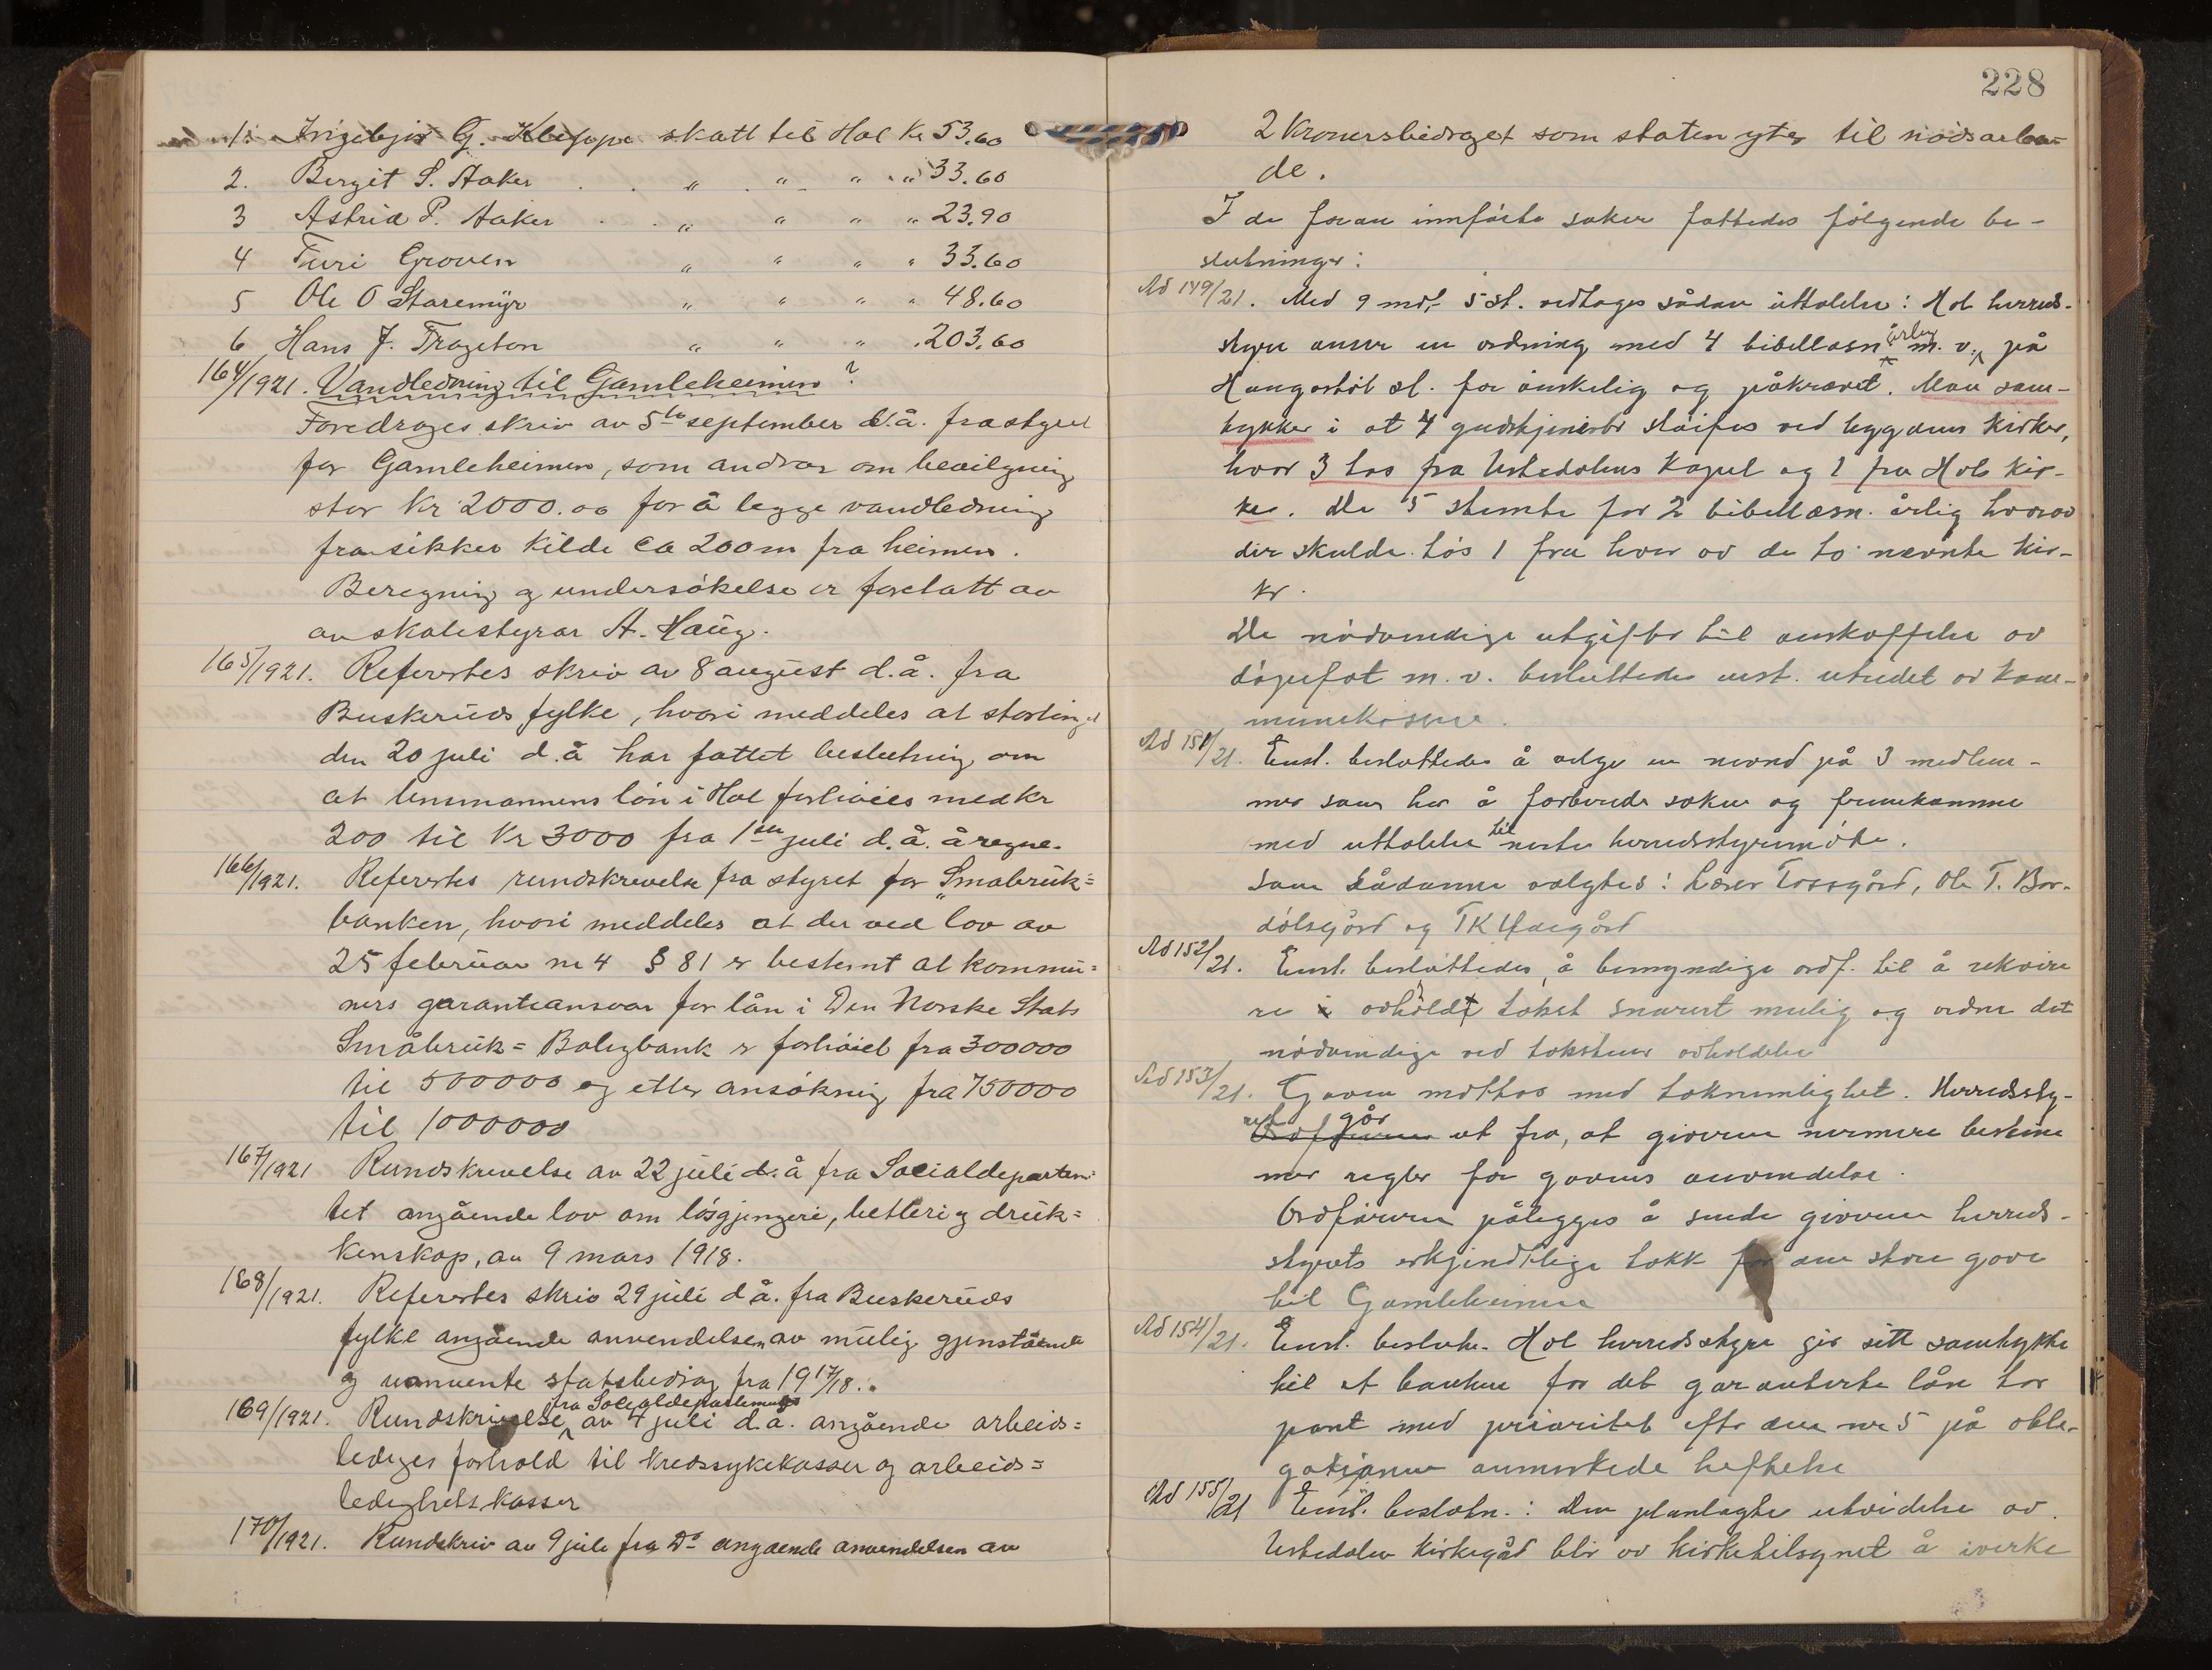 1. Ingebjør G. Kleppe skatt til Hol Kr 53.60
2. Birgit S. Aaker . . " " " " 33.60
3 Astrid P. Aaker . . " " " " 23.90
4 Turi Groven " " " " 33.60
5 Ole O Staremyr " " " " 48.60
6 Hans J. Trageton " " " . 203.60
164/1921. Vandledning til Gamleheimen?
Foredroges skriv av 5te september d.å. fra styret
for Gamleheimen, som andrar om bevilgning
stor Kr 2000.00 for å legge vandledning
fra sikker kilde ca 200m fra heimen.
Beregning og undersökelse er foretatt av
av skolestyrar A. Haug.
165/1921. Refertes skriv av 8 august d.å. fra
Buskeruds fylke, hvori meddeles at stortinget
den 20 juli d.å har fattet beslutning om
at lensmannens lön i Hol forhöies med kr
200 til kr 3000 fra 1ste juli d.å. å regne.
166/1921. Refertes rundskrivelse fra styret for "Småbruk=
banken, hvori meddeles at der ved lov av
25 februar nr 4 § 81 er bestemt at kommu=
ners garantiansvar for lån i Den Norske Stats
Småbruk= Boligbank er forhöiet fra 300000
til 500000 og etter ansökning fra 750000
til 1000000
167/1921 Rundskrivelse av 22 juli d.å fra Socialdepartem=
tet angående lov om lösgjengeri, betleri og druk=
kenskap, av 9 mars 1918.
168/1921. Refertes skriv 29 juli d å. fra Buskeruds
fylke angående anvendelsen av mulig gjenstående
og uanvente statsbidrag fra 1917/18..
169/1921. Rundskrivelse fra Socialdepartementet av 4 juli d.å. angående arbeids=
lediges forhold til Kredssykekasser og arbeids=
ledighetskasser
170/1921. Rundskriv av 9 juli fra Do angaende anvendelsen av
228
2 Kronersbidraget som staten yter til nödsarbei-
de.
I de foran innförte saker fattedes fölgende be-
slutninger:
Ad 149/21. Med 9 mot 5 st. vedtoges sådan uttalelse: Hol herreds-
styre anser en ordning med 4 bibellæsn. årlig m. v. på
Haugastöl st. for önskelig og påkrævet. Man sam-
tykker i at 4 gudstjenester slöifes ved bygdens kirker,
hvor 3 tas fra Ustedalens kapel og 1 fra Hols kir-
ke. De 5 stemte for 2 bibellæsn. årlig hvorav
der skulde tas 1 fra hver av de to nævnte kir-
ker.
De nödvendige utgifter til anskaffelse av
döpefat m. v. besluttedes enst. utredet av kom-
munekassen.
Ad 151/21. Enst. besluttedes å velge en nevnd på 3 medlem-
mer som har å forberede saken og fremkomme
med uttalelse til neste herredsstyremöte.
Som sådanne valgtes: Lærer Tossgård, Ole T. Bar-
dölsgård og T K Uargård
Ad 152/21. Enst. besluttedes, å bemyndige ordf. til å rekvire
re avholdt takst snarest mulig og ordne det
nödvendige ved takstens avholdelse
Ad 153/21. Gaven mottas med taknemlighet. Herredssty-
ret går ut fra, at giveren nærmere bestem
mer regler for gavens anvendelse.
Ordföreren pålegges å sende giveren herreds-
styrets erkjendtlige takk for den store gave
til Gamleheimen
Ad 154/21. Enst. beslutn. Hol herredsstyre gir sitt samtykke
til at banken for det garanterte lån tar
pant med prioritet efter den nr 5 på obli-
gationen anmerkede heftelse
Ad 155/21 Enst. beslutn.: Den planlagte utvidelse av
Ustedalen kirkegård blir av kirketilsynet å iverk